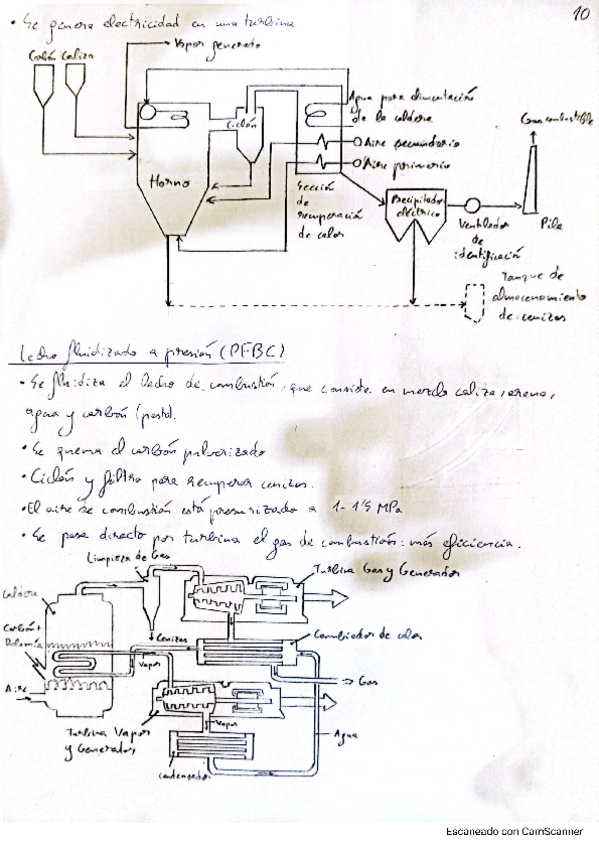 10
• Se genera electricidad en una turbina
Vapor generado
Carbón Caliza
Agua para alimentación
de la caldera
Gas combustible
Ciclón
Aire secundario
Aire primario
Horno
Sección
de
recuperación
de calor
Precipitador
eléctrico
Ventilador
de
identificación
Pila
Tanque de
almacenamiento
de cenizas
Lecho fluidizado a presión (PFBC)
• Se fluidiza el lecho de combustión, que consiste en mezcla caliza, arena,
agua y carbón (pasta).
• Se quema el carbón pulverizado
• Ciclón y filtro para recuperar cenizas.
• El aire de combustión está presurizado a 1-1'5 MPa
• Se pasa directo por turbina el gas de combustión: más eficiencia.
Limpieza de Gas
Turbina Gas y Generador
Caldera
Carbón +
Dolomía
Cenizas
Cambiador de calor
Vapor
Aire
Gas
Turbina Vapor
y Generador
Vapor
Agua
Condensador
Escaneado con CamScanner